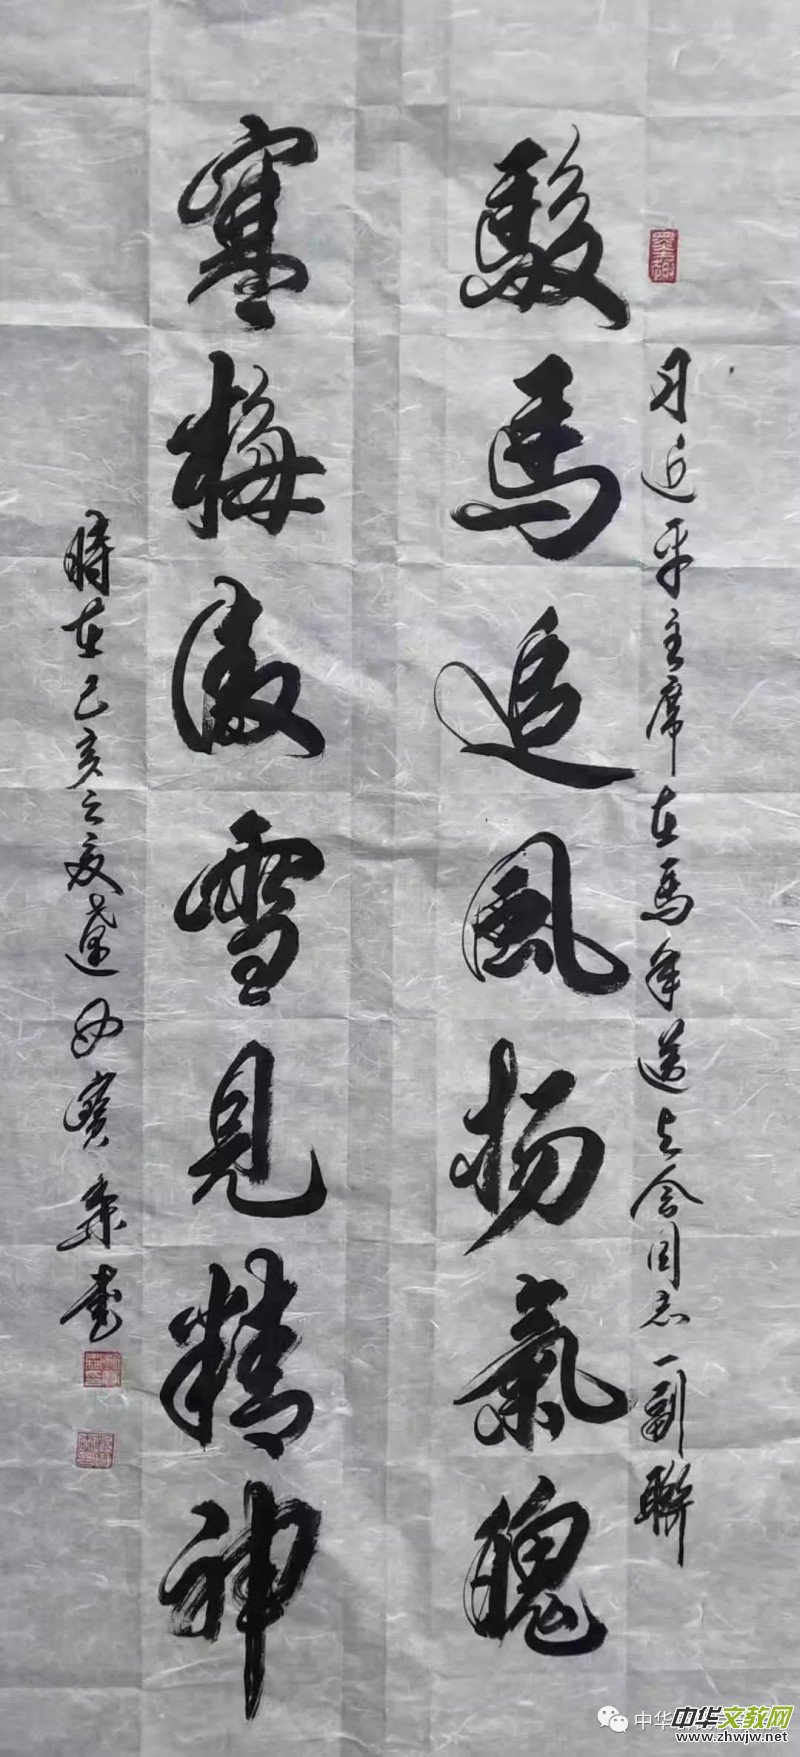 习近平主席在馬年送与会同志一副聯
駿馬追風扬氣魄
寒梅傲雪見精神
時在己亥之夏 寳 書
中华文教网
www.zhwjw.net